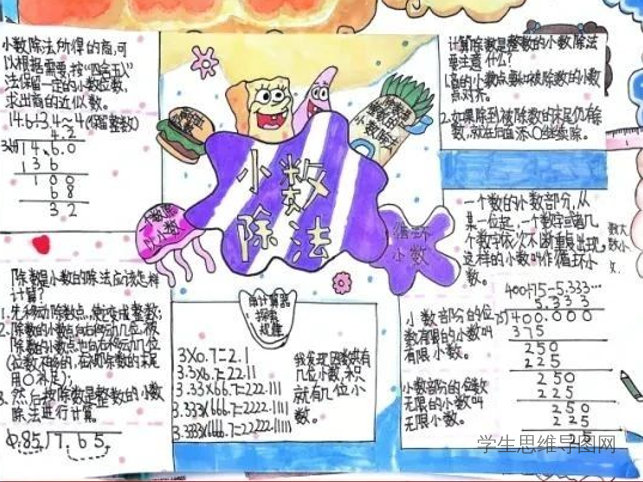 小数除法所得的商,可
以根据需要,按"四舍五入"
法保留一定的小数位数,
求出商的近似数。
14.6÷3.4≈4(保留整数)
4.2
14.6.0
136
100
68
32
小数除法
循环
小数
计算除数是整数的小数除法
要注意什么?
1.商的小数点要和被除数的小数
点对齐。
2.如果除到被除数的末尾仍有余
数,就在后面添0继续除。
一个数的小数部分,从
某一位起,一个数字或者几
个数字依次不断重复出现,
这样的小数叫作循环小
数。
400÷75=5.333…
5.333
75√400.000
375
250
225
250
225
250
225
25
小数部分的位
数有限的小数叫
有限小数。
小数部分的位数
无限的小数叫
无限小数。
除数是小数的除法应该怎样
计算?
1.先移动除数点,使它变成整数;
2.除数的小数点向右移动几位,被
除数的小数点也向右移动几位
(位数不够的,在被除数的末尾
用0补足);
3.然后按除数是整数的小数
除法进行计算。
0.85√7.65
用计算器
探索
规律
3×0.7=2.1
3.3×6.7=22.11
3.33×66.7=222.111
3.333×666.7=2222.1111
我发现因数共有
几位小数,积
就有几位小
数。
学生思维导图网